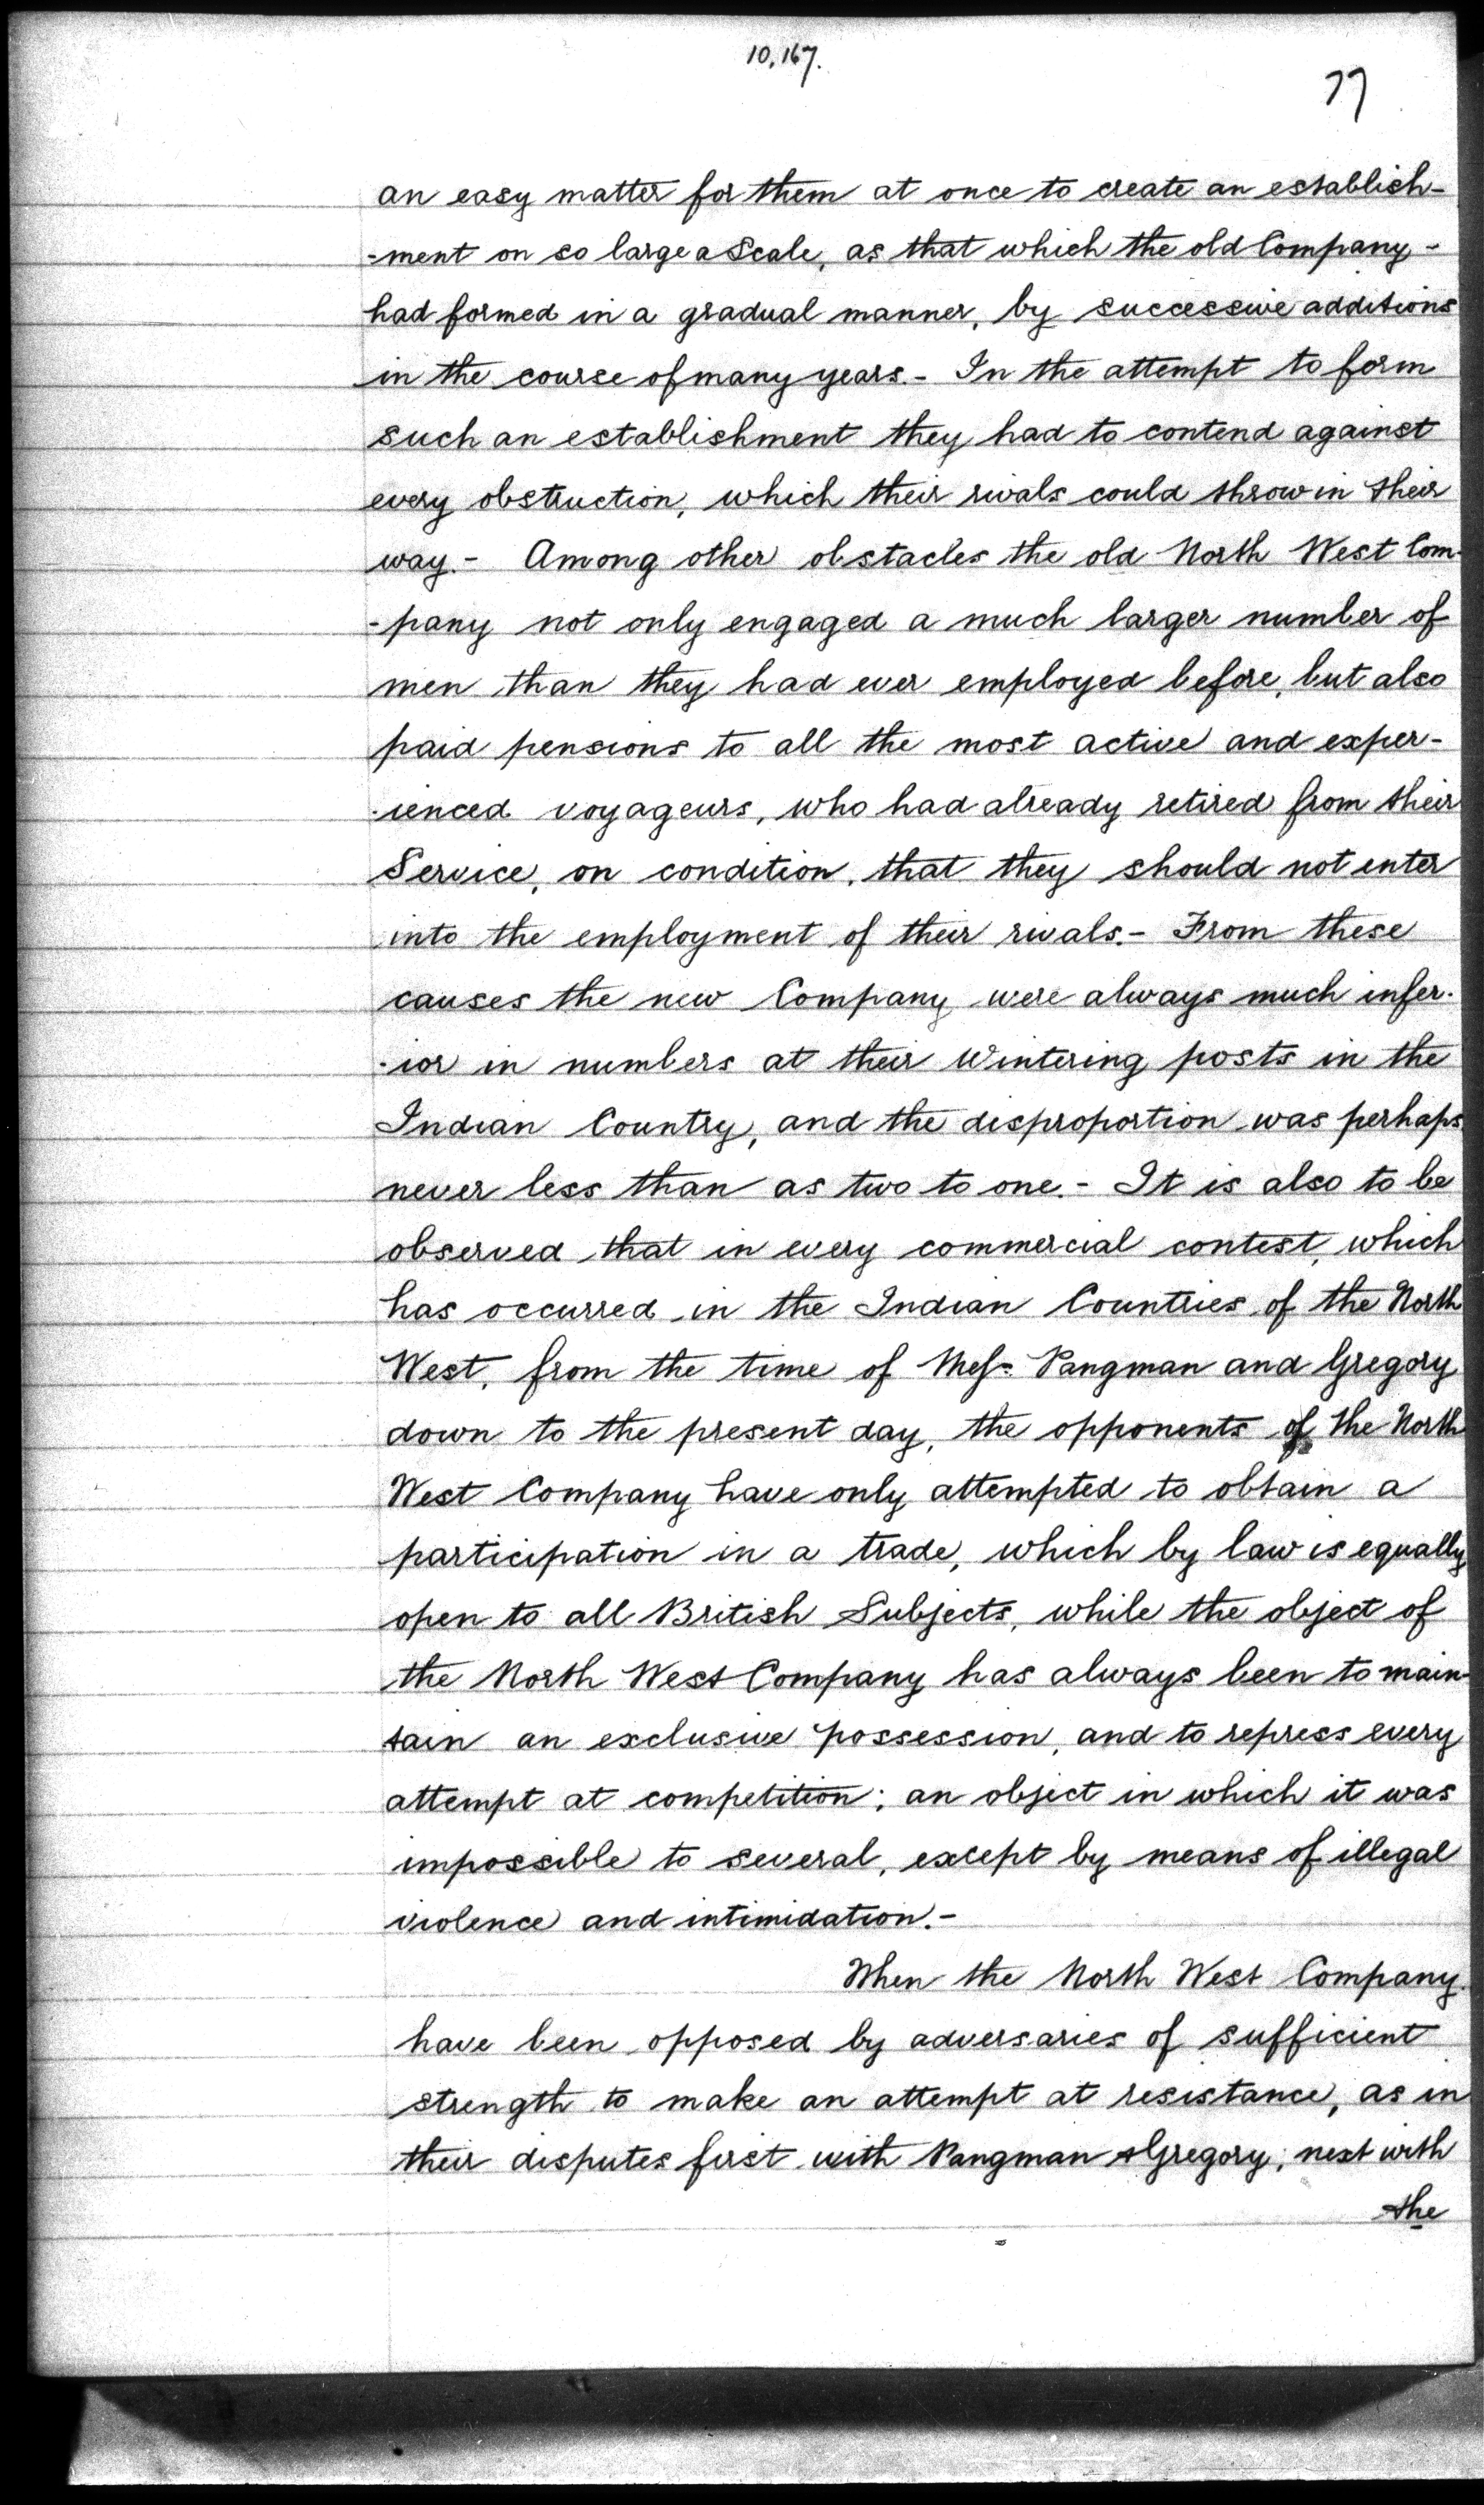 10,167.
77
an easy matter for them at once to create an establish-
-ment on so large a Scale, as that which the old Company -
had formed in a gradual manner, by successive additions
in the course of many years. - In the attempt to form
such an establishment they had to contend against
every obstruction, which their rivals could throw in their
way. - Among other obstacles the old North West Com-
-pany not only engaged a much larger number of
men than they had ever employed before, but also
paid pensions to all the most active and exper-
-ienced voyageurs, who had already retired from their
Service, on condition, that they should not enter
into the employment of their rivals. - From these
causes the new Company were always much infer-
-ior in numbers at their Wintering posts in the
Indian Country, and the disproportion was perhaps
never less than as two to one. - It is also to be
observed that in every commercial contest, which
has occurred in the Indian Countries of the North
West, from the time of Mess Pangman and Gregory
down to the present day, the opponents of the North
West Company have only attempted to obtain a
participation in a trade, which by law is equally
open to all British Subjects, while the object of
the North West Company has always been to main-
tain an exclusive possession, and to repress every
attempt at competition; an object in which it was
impossible to several, except by means of illegal
violence and intimidation. -
When the North West Company
have been opposed by adversaries of sufficient
strength to make an attempt at resistance, as in
their disputes first with Pangman & Gregory; next with
the